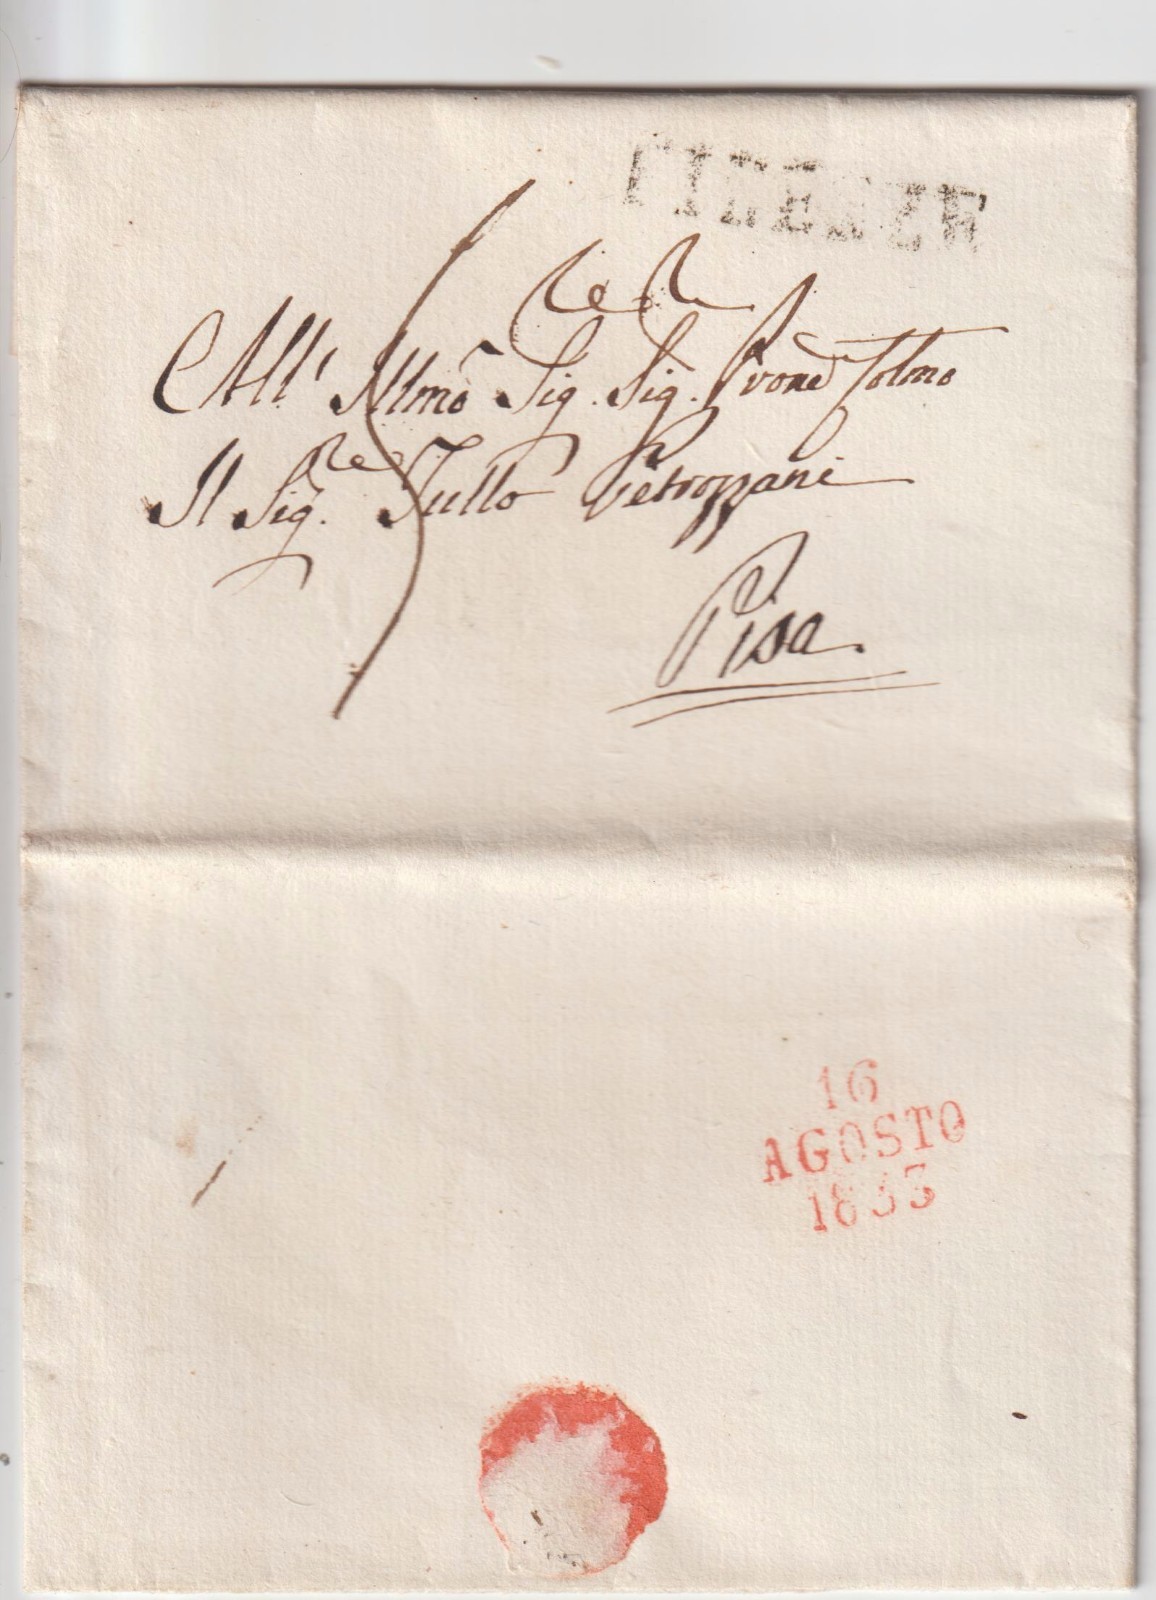 FIRENZE
All' Illmo Sig.re Sig.re P'rone Colmo
Il Sig.re Tullo Petrozzani
Pisa.
16
AGOSTO
1833